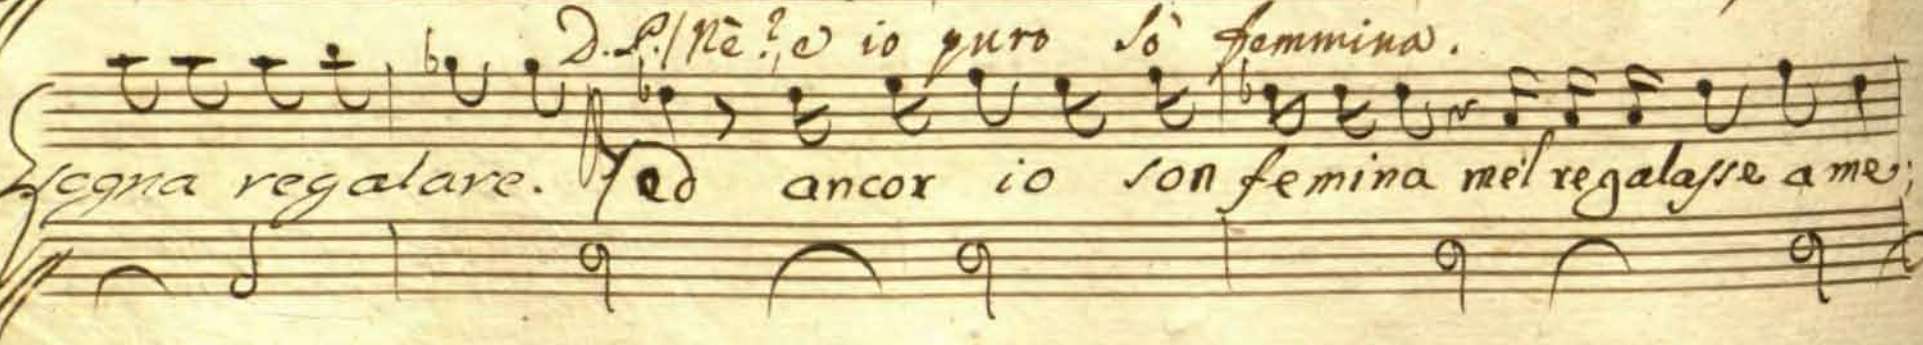 D. P./ Nè? e io puro sò femmina.
scgna regalare. ed ancor io son femina mel regalasse a me;